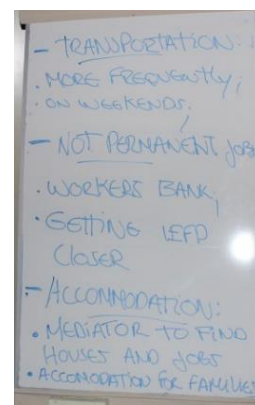 - TRANSPORTATION:
. MORE FREQUENTLY;
. ON WEEKENDS;
- NOT PERMANENT JOBS
. WORKERS BANK;
. GETTING LEFD
CLOSER
- ACCOMMODATION:
. MEDIATOR TO FIND
HOUSES AND JOBS
. ACCOMODATION FOR FAMILIES